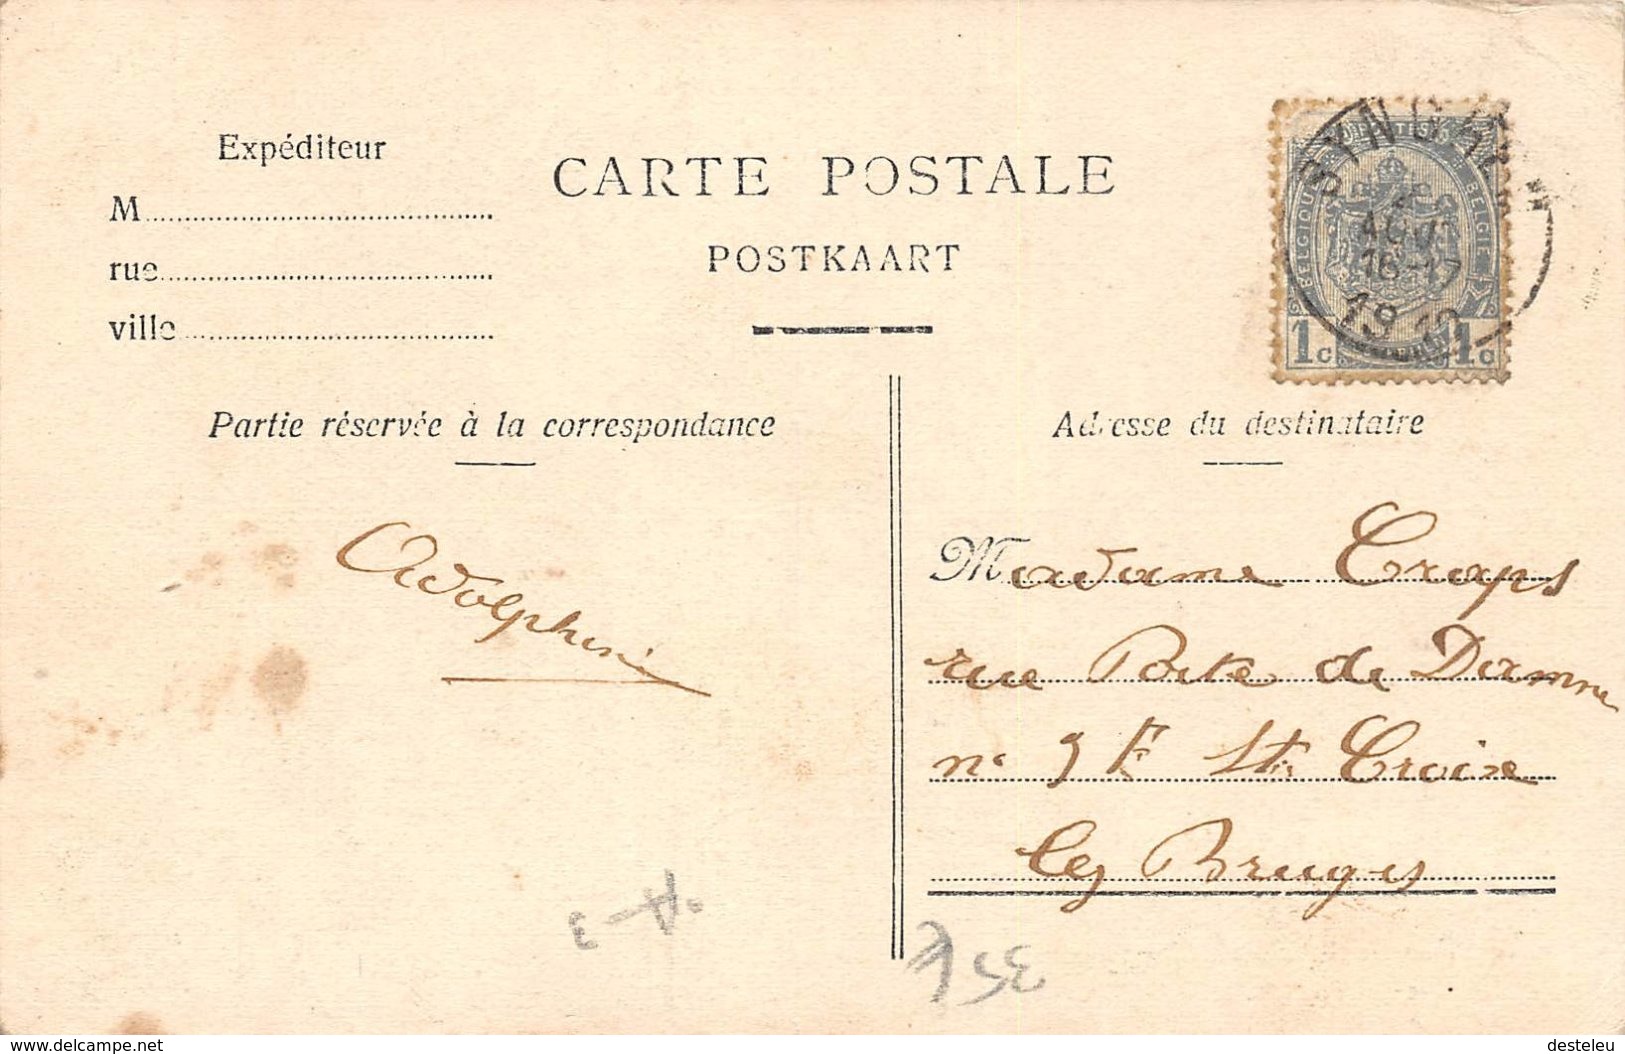 Expéditeur
M
rue
ville
CARTE POSTALE
POSTKAART
BELGIQUE POSTES BELGIE
1c 1c
SYNGHEM
AOU
16-17
1910
Partie réservée à la correspondance
Adresse du destinataire
Adolphine
Madame Craps
rue Porte de Damme
n° 9 E Ste Croix
lez Bruges
A-3
35€
www.delcampe.net
desteleu